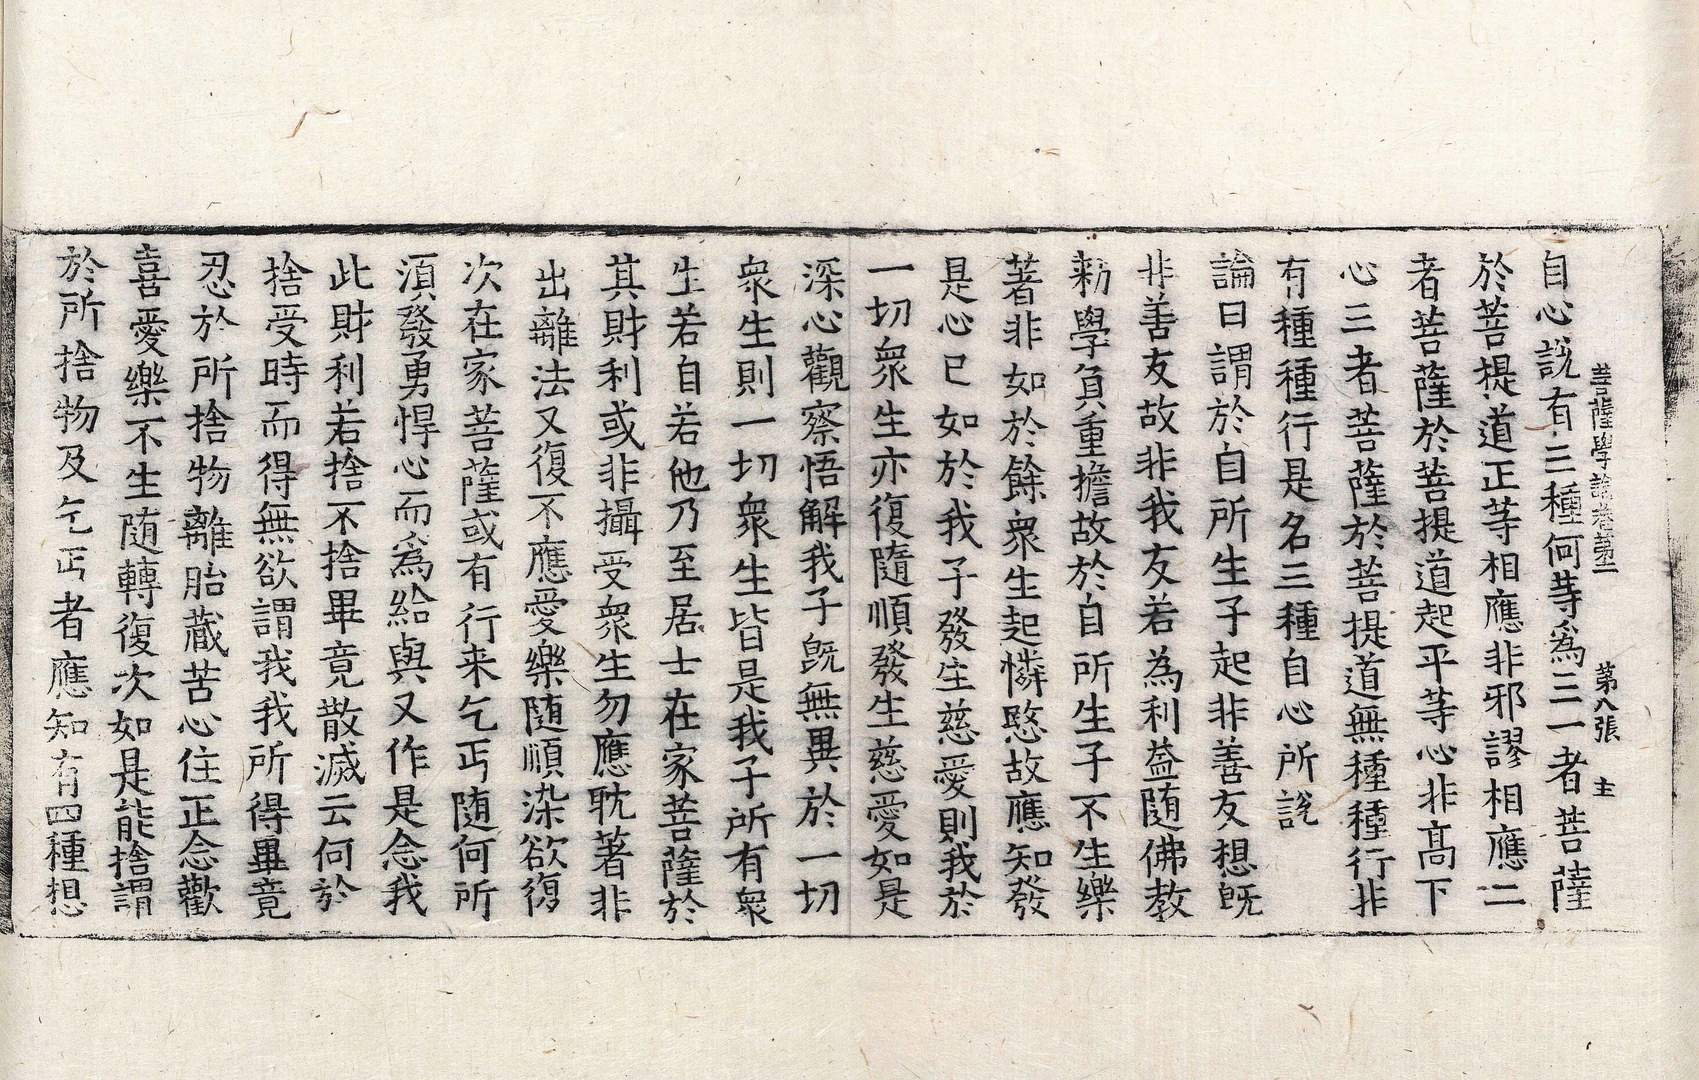 菩薩學論卷第二　第八張　主
自心說有三種何等爲三一者菩薩
於菩提道正等相應非邪謬相應二
者菩薩於菩提道起平等心非髙下
心三者菩薩於菩提道無種種行非
有種種行是名三種自心所說
論曰謂於自所生子起非善友想旣
非善友故非我友若為利益随佛教
勑學負重擔故於自所生子不生樂
著非如於餘衆生起憐愍故應知發
是心已如於我子發生慈愛則我於
一切衆生亦復隨順發生慈愛如是
深心觀察悟解我子旣無異於一切
衆生則一切衆生皆是我子所有衆
生若自若他乃至居士在家菩薩於
其財利或非攝受衆生勿應耽著非
出離法又復不應愛樂随順染欲復
次在家菩薩或有行来乞丐随何所
須發勇悍心而為給與又作是念我
此財利若捨不捨畢竟散滅云何於
捨受時而得無欲謂我我所得畢竟
忍於所捨物離胎藏苦心住正念歡
喜愛樂不生随轉復次如是能捨謂
於所捨物及乞丐者應知有四種想